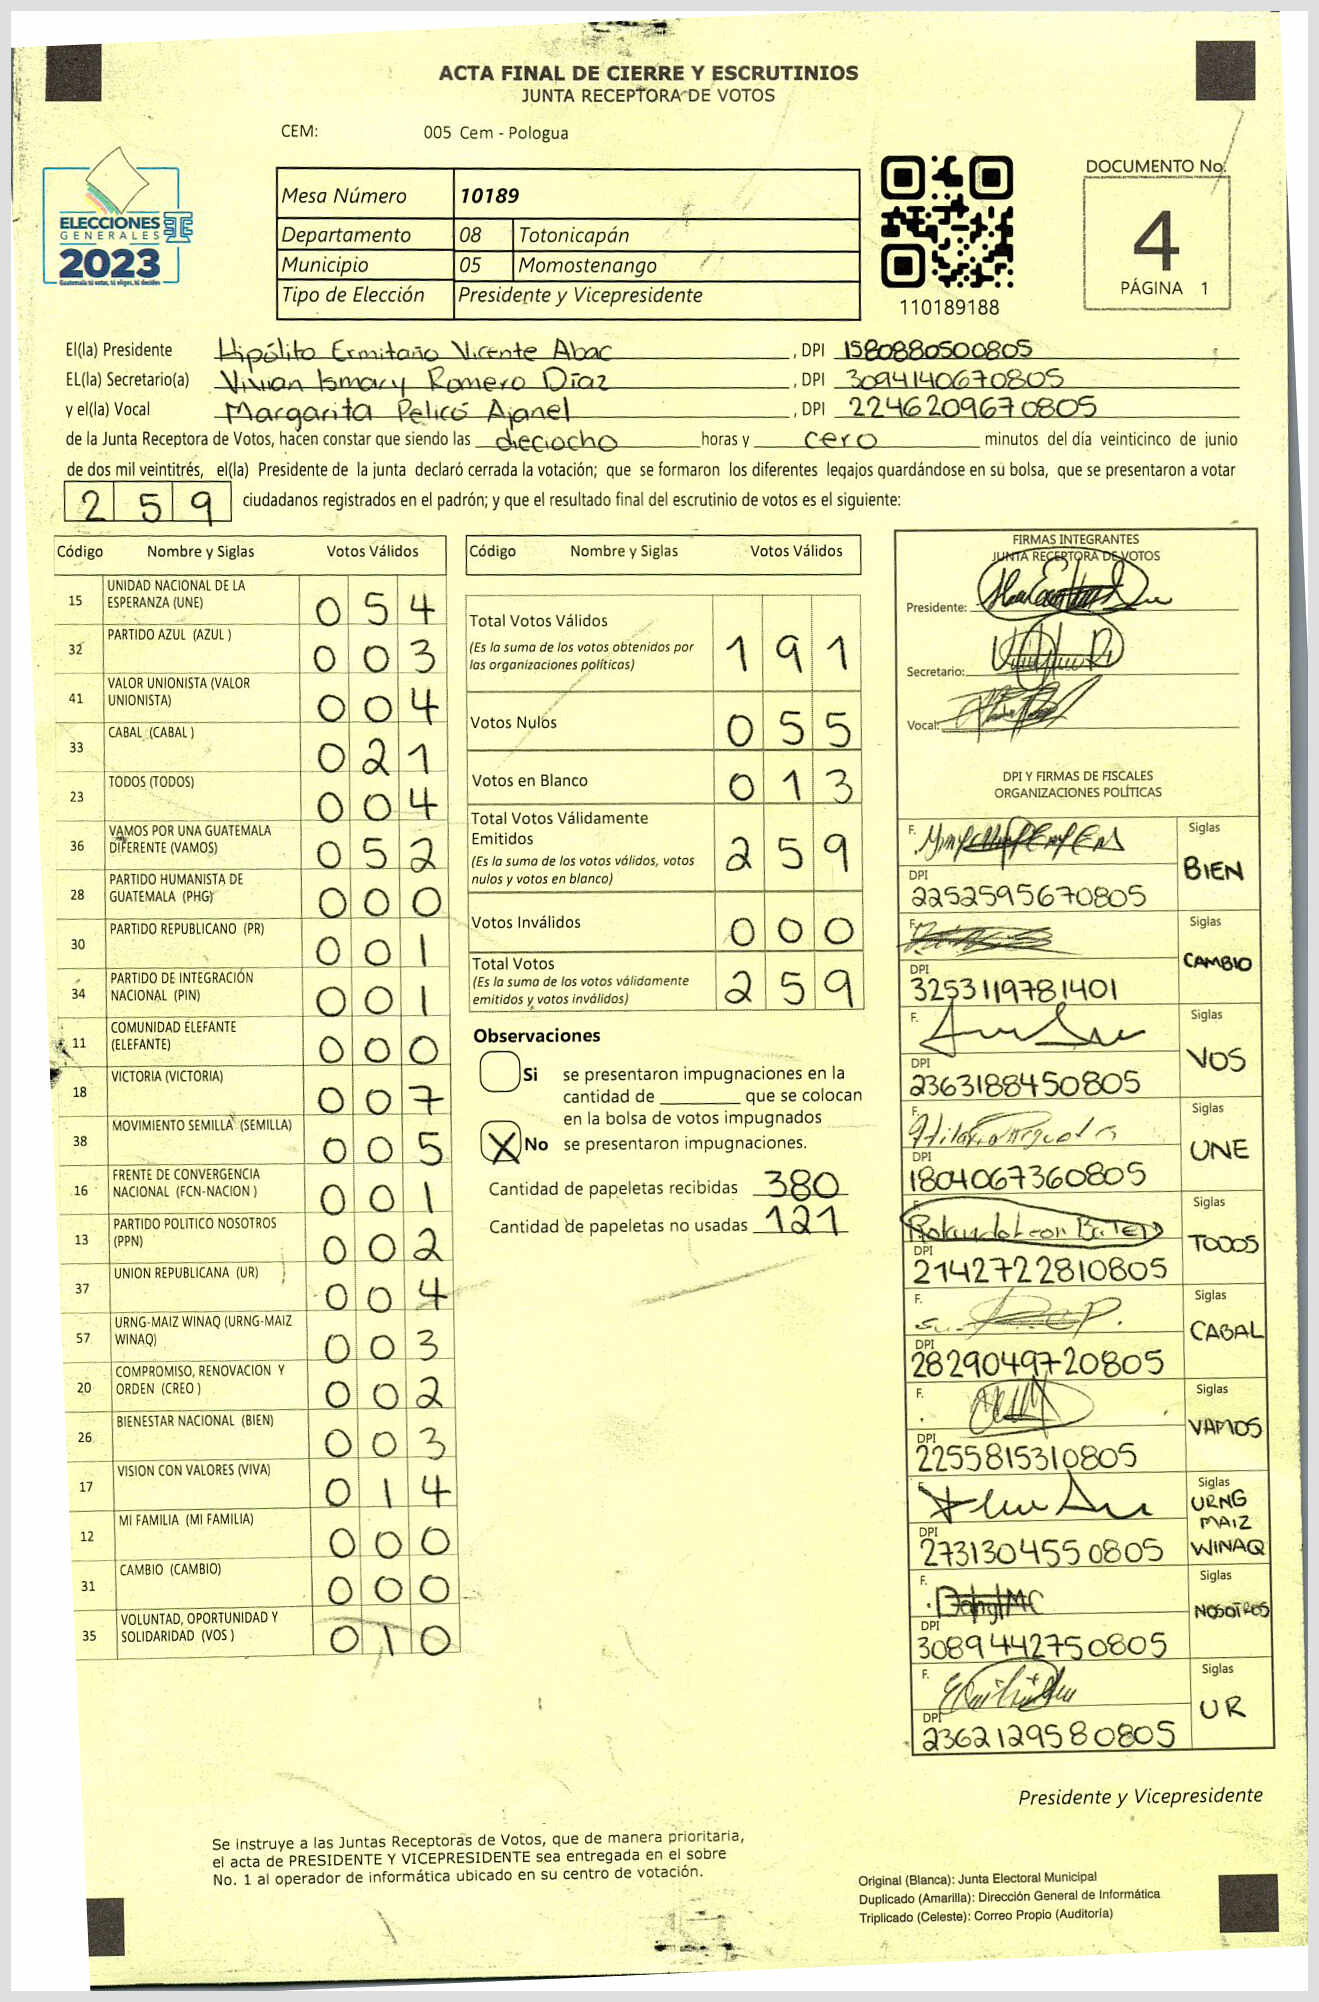 ACTA FINAL DE CIERRE Y ESCRUTINIOS
JUNTA RECEPTORA DE VOTOS
CEM: 005 Cem - Pologua
ELECCIONES
GENERALES
2023
Guatemala tú votas, tú eliges, tú decides
Mesa Número 10189
Departamento 08 Totonicapán
Municipio 05 Momostenango
Tipo de Elección Presidente y Vicepresidente
110189188
DOCUMENTO No.
4
PÁGINA 1
El(la) Presidente Hipólito Ermitaño Vicente Abac, DPI 1580880500805
EL(la) Secretario(a) Vivian Ismary Romero Díaz, DPI 3094140670805
y el(la) Vocal Margarita Pelicó Ajanel, DPI 2246209670805
de la Junta Receptora de Votos, hacen constar que siendo las dieciocho horas y cero minutos del día veinticinco de junio
de dos mil veintitrés, el(la) Presidente de la junta declaró cerrada la votación; que se formaron los diferentes legajos guardándose en su bolsa, que se presentaron a votar
259 ciudadanos registrados en el padrón; y que el resultado final del escrutinio de votos es el siguiente:
Código Nombre y Siglas Votos Válidos
15 UNIDAD NACIONAL DE LA ESPERANZA (UNE) 054
32 PARTIDO AZUL (AZUL ) 003
41 VALOR UNIONISTA (VALOR UNIONISTA) 004
33 CABAL (CABAL ) 021
23 TODOS (TODOS) 004
36 VAMOS POR UNA GUATEMALA DIFERENTE (VAMOS) 052
28 PARTIDO HUMANISTA DE GUATEMALA (PHG) 000
30 PARTIDO REPUBLICANO (PR) 001
34 PARTIDO DE INTEGRACIÓN NACIONAL (PIN) 001
11 COMUNIDAD ELEFANTE (ELEFANTE) 000
18 VICTORIA (VICTORIA) 007
38 MOVIMIENTO SEMILLA (SEMILLA) 005
16 FRENTE DE CONVERGENCIA NACIONAL (FCN-NACION ) 001
13 PARTIDO POLITICO NOSOTROS (PPN) 002
37 UNION REPUBLICANA (UR) 004
57 URNG-MAIZ WINAQ (URNG-MAIZ WINAQ) 003
20 COMPROMISO, RENOVACION Y ORDEN (CREO ) 002
26 BIENESTAR NACIONAL (BIEN) 003
17 VISION CON VALORES (VIVA) 014
12 MI FAMILIA (MI FAMILIA) 000
31 CAMBIO (CAMBIO) 000
35 VOLUNTAD, OPORTUNIDAD Y SOLIDARIDAD (VOS ) 010
Código Nombre y Siglas Votos Válidos
Total Votos Válidos 191
(Es la suma de los votos obtenidos por
las organizaciones políticas)
Votos Nulos 055
Votos en Blanco 013
Total Votos Válidamente
Emitidos 259
(Es la suma de los votos válidos, votos
nulos y votos en blanco)
Votos Inválidos 000
Total Votos 259
(Es la suma de los votos válidamente
emitidos y votos inválidos)
Observaciones
Si se presentaron impugnaciones en la
cantidad de ________ que se colocan
en la bolsa de votos impugnados
X No se presentaron impugnaciones.
Cantidad de papeletas recibidas 380
Cantidad de papeletas no usadas 121
FIRMAS INTEGRANTES
JUNTA RECEPTORA DE VOTOS
Presidente:
Secretario:
Vocal:
DPI Y FIRMAS DE FISCALES
ORGANIZACIONES POLÍTICAS
F. Siglas BIEN
DPI 2252595670805
F. Siglas CAMBIO
DPI 3253119781401
F. Siglas VOS
DPI 2363188450805
F. Siglas UNE
DPI 1804067360805
F. Siglas TODOS
DPI 2142722810805
F. Siglas CABAL
DPI 2829049720805
F. Siglas VAMOS
DPI 2255815310805
F. Siglas URNG MAIZ WINAQ
DPI 2731304550805
F. Siglas NOSOTROS
DPI 3089442750805
F. Siglas UR
DPI 2362129580805
Presidente y Vicepresidente
Se instruye a las Juntas Receptoras de Votos, que de manera prioritaria,
el acta de PRESIDENTE Y VICEPRESIDENTE sea entregada en el sobre
No. 1 al operador de informática ubicado en su centro de votación.
Original (Blanca): Junta Electoral Municipal
Duplicado (Amarilla): Dirección General de Informática
Triplicado (Celeste): Correo Propio (Auditoría)